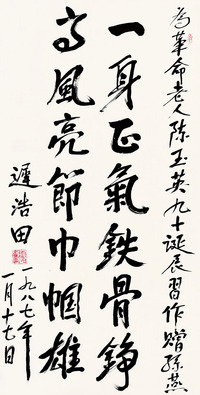 為革命老人陈玉英九十诞辰習作贈孫燕
一身正氣鉄骨錚
高風亮節巾幗雄
遲浩田
一九八七年
一月十七日